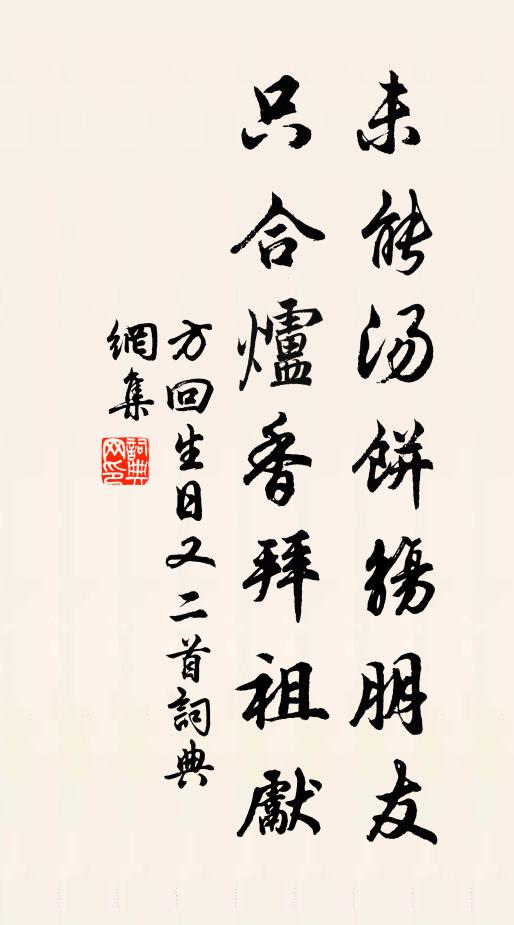 未能汤餅觴朋友
只合爐香拜祖獻
方回生日又二首詞典
網集
詞典網印